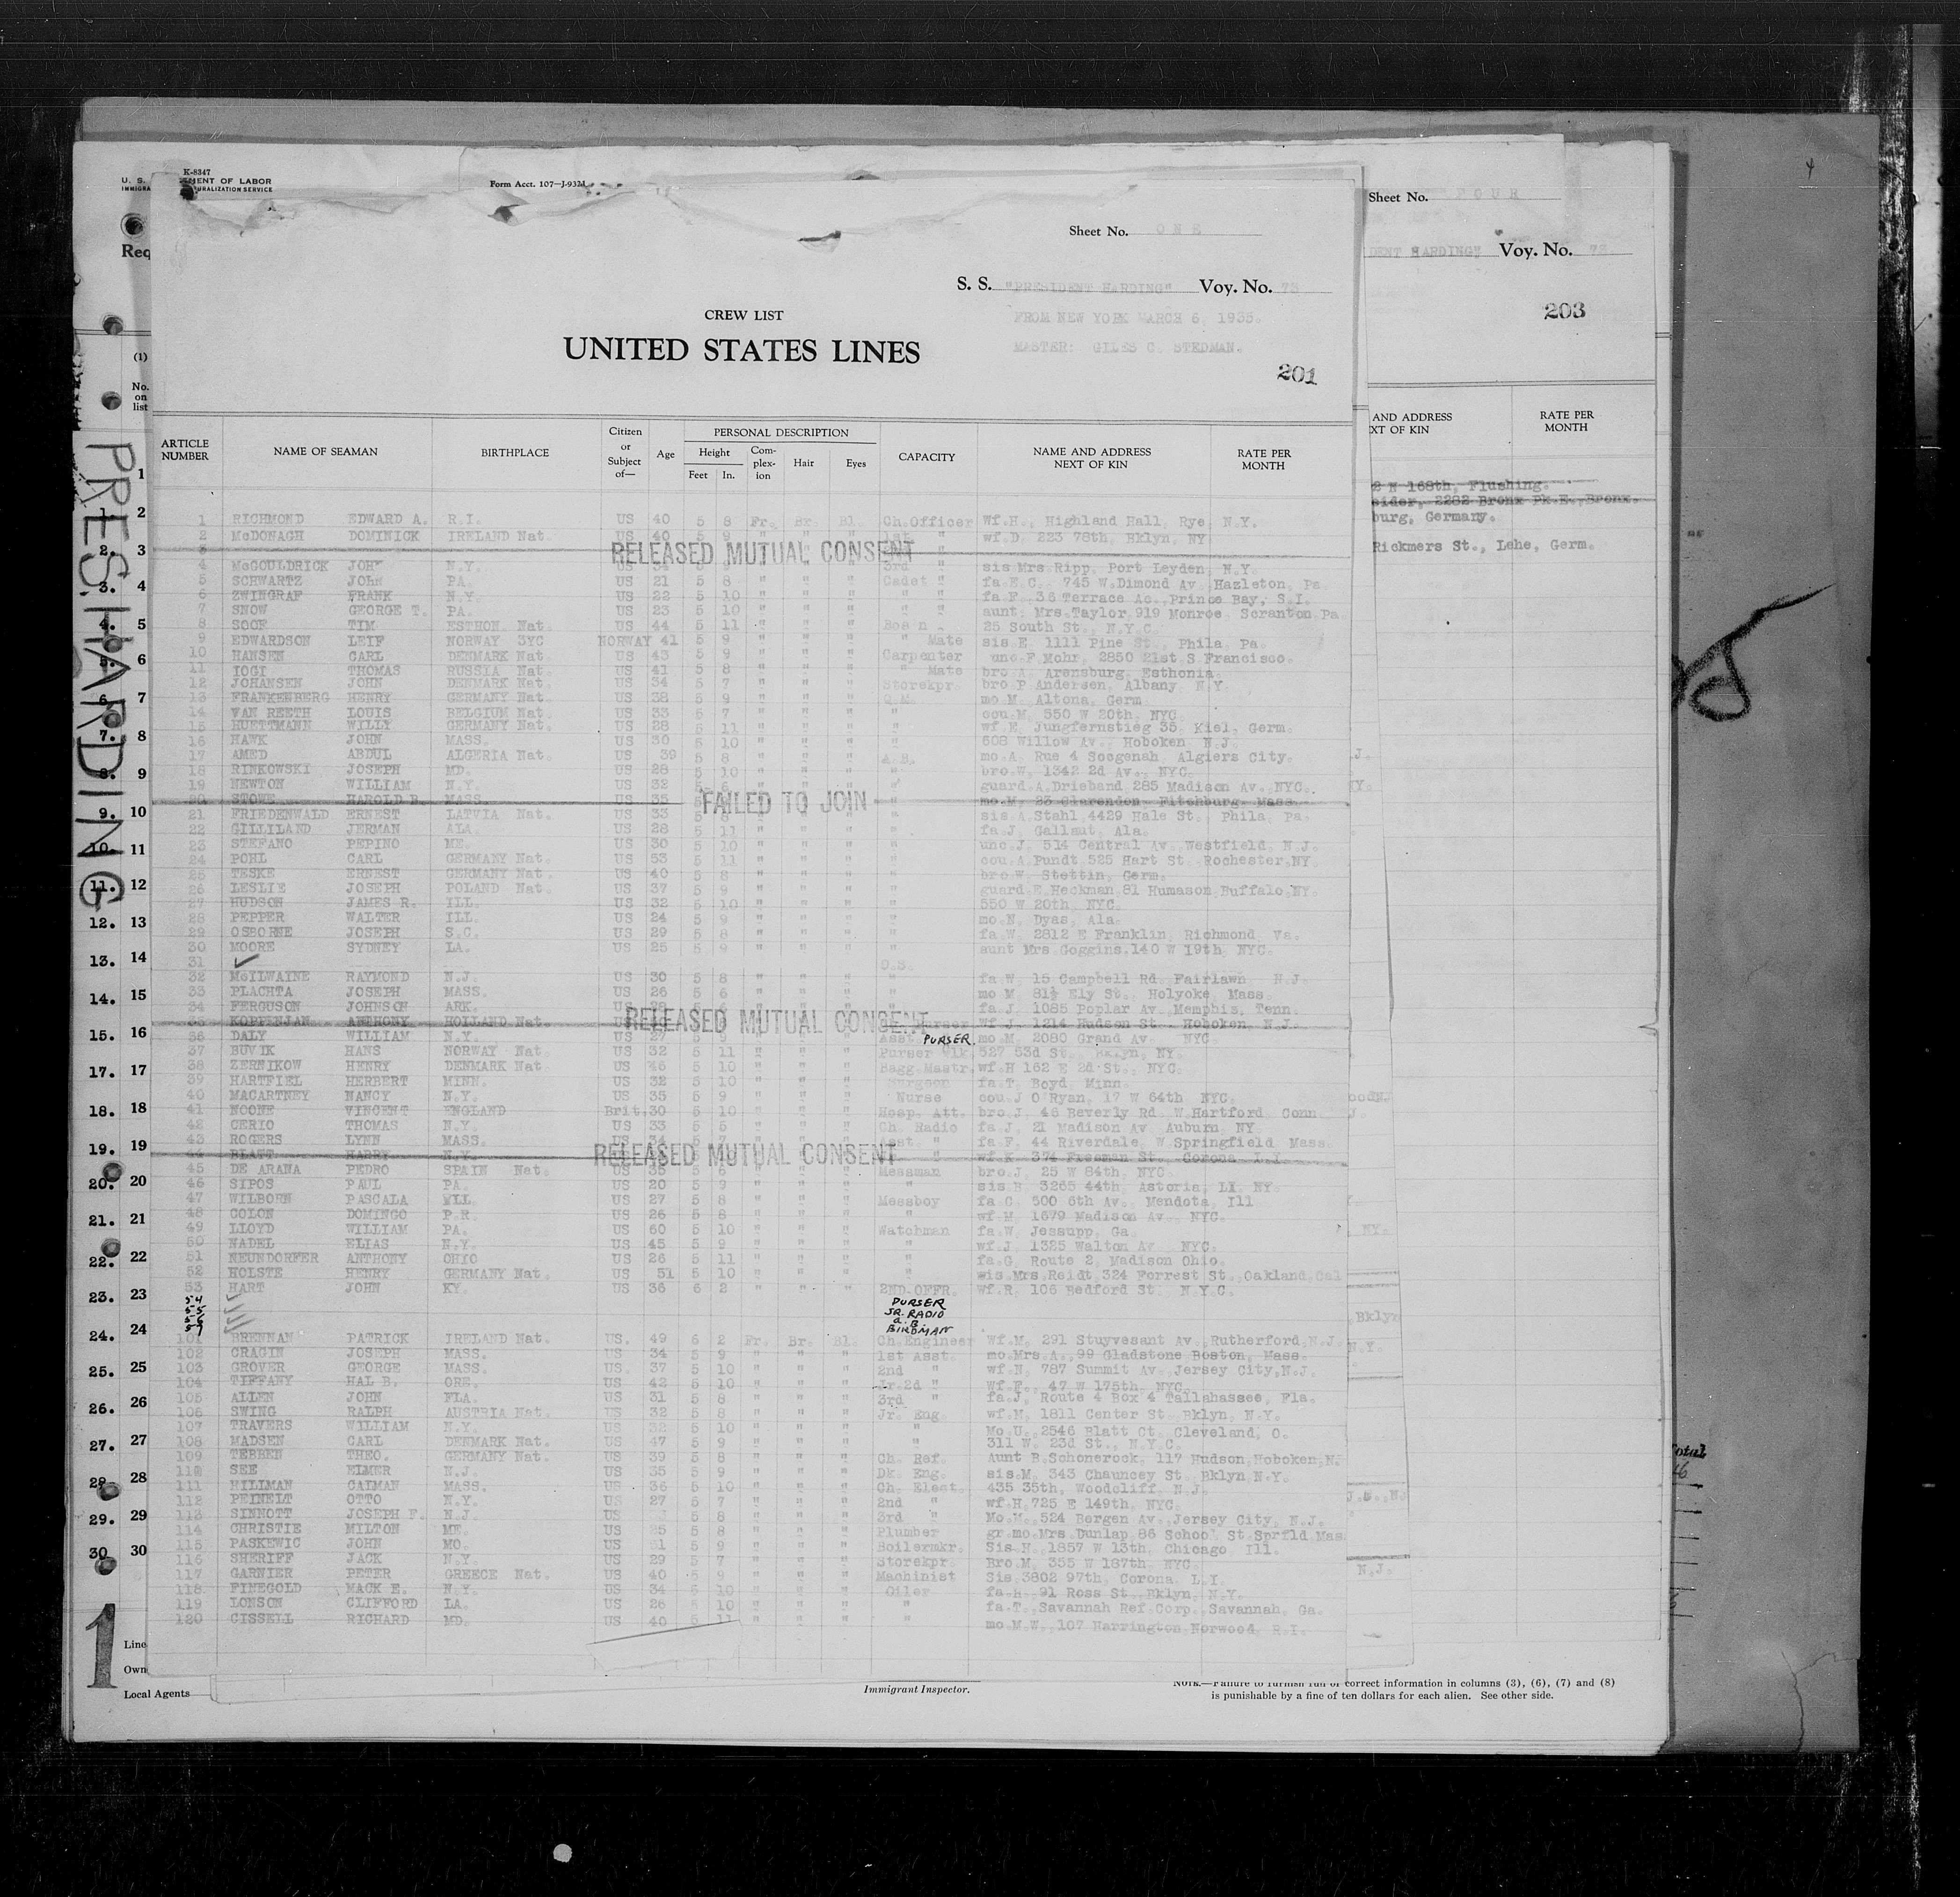 K-8347
Form Acct. 107—J-932
Sheet No. ONE
S. S. "PRESIDENT HARDING" Voy. No. 73
FROM NEW YORK MARCH 6, 1935.
MASTER: GILES C. STEDMAN.
CREW LIST
UNITED STATES LINES
201
ARTICLE NUMBER NAME OF SEAMAN BIRTHPLACE Citizen or Subject of— Age PERSONAL DESCRIPTION Height Feet In. Complexion Hair Eyes CAPACITY NAME AND ADDRESS NEXT OF KIN RATE PER MONTH
1 RICHMOND EDWARD A. R.I. US 40 5 8 Fr. Br. Bl. Ch.Officer wf.H. Highland Hall, Rye N.Y.
2 McDONAGH DOMINICK IRELAND Nat. US 40 5 9 " " " 1st " wf.D. 223 78th, Bklyn, NY
3 RELEASED MUTUAL CONSENT
4 McGOULDRICK JOHN N.Y. US " " " 3rd " sis Mrs Ripp, Port Leyden, N.Y.
5 SCHWARTZ JOHN PA. US 21 5 8 " " " Cadet " fa.E.C. 745 W.Dimond Av Hazleton, Pa.
6 ZWINGRAF FRANK N.Y. US 22 5 10 " " " " " fa F. 36 Terrace Ao., Prince Bay, S.I.
7 SNOW GEORGE T. PA. US 23 5 10 " " " " " aunt Mrs.Taylor 919 Monroe Scranton Pa
8 SOOF TIM ESTHON. Nat. US 44 5 11 " " " Bos'n 25 South St., N.Y.C.
9 EDWARDSON LEIF NORWAY 3YC NORWAY 41 5 9 " " " " Mate sis E. 1111 Pine St., Phila Pa.
10 HANSEN CARL DENMARK Nat. US 43 5 9 " " " Carpenter unc.F.Mohr, 2850 21st S.Francisco.
11 IOGI THOMAS RUSSIA Nat. US 41 5 8 " " " " Mate bro A. Arensburg, Esthonia
12 JOHANSEN JOHN DENMARK Nat. US 34 5 7 " " " Storekpr. bro P Andersen, Albany, N.Y.
13 FRANKENBERG HENRY GERMANY Nat. US 38 5 9 " " " Q.M. mo M. Altona, Germ
14 VAN REETH LOUIS BELGIUM Nat. US 33 5 7 " " " " cou.M. 550 W 20th. NYC
15 HUETTMANN WILLY GERMANY Nat. US 28 5 11 " " " " wf E. Jungfernstieg 35 Kiel, Germ.
16 HAWK JOHN MASS. US 30 5 10 " " " " 608 Willow Av. Hoboken N.J.
17 AMED ABDUL ALGERIA Nat. US 39 5 8 " " " A.B. mo.A. Rue 4 Soogenah, Algiers City.
18 RINKOWSKI JOSEPH MD. US 28 5 10 " " " " bro.W. 1342 2d Av., NYC.
19 NEWTON WILLIAM N.Y. US 32 " " " " guard.A.Drieband 285 Madison Av. NYC.
20 STOWE HAROLD B. MASS. US 35 FAILED TO JOIN mo.M. 23 Clarendon Fitchburg Mass
21 FRIEDENWALD ERNEST LATVIA Nat. US 33 " " " " sis.A.Stahl 4429 Hale St. Phila Pa.
22 GILLILAND JERMAN ALA. US 28 5 11 " " " " fa.J. Gallaut, Ala.
23 STEFANO PEPINO ME. US 30 5 10 " " " " unc.J. 514 Central Av Westfield, N.J.
24 POHL CARL GERMANY Nat. US 53 5 11 " " " " cou.A.Pundt 525 Hart St Rochester,NY.
25 TESKE ERNEST GERMANY Nat. US 40 5 8 " " " " bro.W. Stettin, Germ.
26 LESLIE JOSEPH POLAND Nat. US 37 5 9 " " " " guard.E.Heckman 81 Humason Buffalo NY.
27 HUDSON JAMES R. ILL. US 32 5 10 " " " " 550 W 20th. NYC.
28 PEPPER WALTER ILL. US 24 5 9 " " " " mo.N. Dyas, Ala.
29 OSBORNE JOSEPH S.C. US 29 5 8 " " " " fa.W. 2812 E Franklin, Richmond Va.
30 MOORE SYDNEY LA. US 25 5 9 " " " " aunt Mrs Goggins.140 W 19th NYC.
31 O.S.
32 McILWAINE RAYMOND N.J. US 30 5 8 " " " " fa W 15 Campbell Rd Fairlawn N.J.
33 PLACHTA JOSEPH MASS. US 26 5 6 " " " " mo M 81½ Ely St. Holyoke Mass
34 FERGUSON JOHNSON ARK. US " " " " fa.J. 1085 Poplar Av. Memphis, Tenn.
35 KOPPENJAN ANTHONY HOLLAND Nat. US RELEASED MUTUAL CONSENT wf J. 1214 Hudson St Hoboken, N.J.
36 DALY WILLIAM N.Y. US 27 5 9 " " " Asst PURSER mo M. 2080 Grand Av NYC
37 BUVIK HANS NORWAY Nat. US 32 5 11 " " " Purser Clk 527 53d St Bklyn, NY.
38 ZERNIKOW HENRY DENMARK Nat US 46 5 10 " " " Bagg.Mastr. wf.H 162 E 2d St., NYC.
39 HARTFIEL HERBERT MINN. US 32 5 10 " " " Surgeon fa.T. Boyd, Minn.
40 MACARTNEY NANCY N.Y. US 35 5 9 " " " Nurse cou.J O'Ryan, 17 W 64th NYC.
41 NOONE VINCENT ENGLAND Brit. 30 5 10 " " " Hosp. Att. bro.J. 46 Beverly Rd W.Hartford Conn
42 CERIO THOMAS N.Y. US 33 5 5 " " " Ch. Radio fa.J. 21 Madison Av Auburn NY
43 ROGERS LYNN MASS. US 34 5 7 " " " Asst. " fa F. 44 Riverdale W Springfield Mass
44 BLATT HARRY N.Y. RELEASED MUTUAL CONSENT wf K. 374 Freeman St. Corona L.I.
45 DE ARANA PEDRO SPAIN Nat. US 35 5 6 " " " Messman bro.J. 25 W 84th, NYC.
46 SIPOS PAUL PA. US 20 5 9 " " " " sis B. 3265 44th, Astoria, LI NY
47 WILBORN PASCALA ILL. US 27 5 8 " " " Messboy fa C. 500 6th Av. Mendota Ill
48 COLON DOMINGO P.R. US 26 5 8 " " " " wf M. 1679 Madison Av NYC.
49 LLOYD WILLIAM PA. US 60 5 10 " " " Watchman fa.W. Jessupp, Ga.
50 NADEL ELIAS N.Y. US 45 5 9 " " " " wf.J. 1325 Walton Av NYC.
51 NEUNDORFER ANTHONY OHIO US 26 5 11 " " " " fa.G. Route 2, Madison Ohio.
52 HOLSTE HENRY GERMANY Nat. US 51 5 10 " " " " sis Mrs Reidt 324 Forrest St. Oakland Cal
53 HART JOHN KY. US 36 6 2 " " " 2ND OFFR. wf.R. 106 Bedford St. N.Y.C.
54 PURSER
55 JR. RADIO
56 A.B.
57 BIRDMAN
101 BRENNAN PATRICK IRELAND Nat. US. 49 6 2 Fr. Br. Bl. Ch.Engineer wf.M. 291 Stuyvesant Av. Rutherford,N.J.
102 CRAGIN JOSEPH MASS. US 34 5 9 " " " 1st Asst. mo.Mrs.A. 99 Gladstone Boston, Mass.
103 GROVER GEORGE MASS. US. 37 5 10 " " " 2nd " wf.N. 787 Summit Av. Jersey City,N.J.
104 TIFFANY HAL B. ORE. US 42 5 10 " " " Jr.2d " wf.F. 47 W 175th NYC.
105 ALLEN JOHN FLA. US 31 5 8 " " " 3rd " fa.J. Route 4 Box 4 Tallahassee, Fla.
106 SWING RALPH AUSTRIA Nat. US 32 5 8 " " " Jr. Eng. wf.N. 1811 Center St Bklyn, N.Y.
107 TRAVERS WILLIAM N.Y. US 32 5 10 " " " " Mo.U. 2546 Blatt Ct. Cleveland, O.
108 MADSEN CARL DENMARK Nat. US 47 5 9 " " " " 311 W. 23d St., N.Y.C.
109 TEBBEN THEO. GERMANY Nat. US 39 5 8 " " " Ch. Ref. Aunt B.Schonerock. 117 Hudson,Hoboken,N.
110 SEE ELMER N.J. US 35 5 9 " " " Dk. Eng. sis.M. 343 Chauncey St. Bklyn N.Y.
111 HILLMAN CAIMAN MASS. US 36 5 10 " " " Ch. Elect. 435 35th, Woodcliff, N.J.
112 PEINELT OTTO N.Y. US 27 5 7 " " " 2nd " wf.H.725 E 149th. NYC.
113 SINNOTT JOSEPH F. N.J. US 5 8 " " " 3rd " Mo.M. 524 Bergen Av. Jersey City, N.J.
114 CHRISTIE MILTON ME. US 25 5 8 " " " Plumber gr.mo.Mrs Dunlap 86 School St Sprfld Mas
115 PASKEWIC JOHN MO. US 31 5 9 " " " Boilermkr. Sis.H. 1857 W 13th, Chicago Ill.
116 SHERIFF JACK N.Y. US 29 5 7 " " " Storekpr. Bro.M. 353 W 187th. NYC.
117 GARNIER PETER GREECE Nat. US 40 5 9 " " " Machinist Sis 3802 97th, Corona, L.I.
118 FINEGOLD MACK E. N.Y. US 34 5 10 " " " Oiler fa.H. 91 Ross St. Bklyn, N.Y.
119 LONSON CLIFFORD LA. US 26 5 10 " " " " fa.T. Savannah Ref.Corp. Savannah, Ga.
120 CISSELL RICHARD MD. US 40 5 11 " " " " mo.M.W. 107 Harrington Norwood, R.I.
Sheet No. FOUR
DENT HARDING" Voy. No. 73
203
AND ADDRESS
XT OF KIN
RATE PER MONTH
2 N 168th, Flushing.
sider, 2282 Bronx Pk.E., Bronx.
burg, Germany.
Rickmers St., Lehe, Germ.
PRES. HARDING
1
Line
Own
Local Agents
Immigrant Inspector.
NOTE.—Failure to furnish full or correct information in columns (3), (6), (7) and (8)
is punishable by a fine of ten dollars for each alien. See other side.